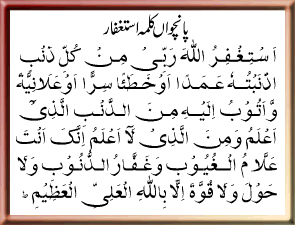 پانچواں کلمہ استغفار
اَسْتَغْفِرُ اللّٰهَ رَبِّىْ مِنْ كُلِّ ذَنْۢبٍ
اَذْنَبْتُهٗ عَمَدًا اَوْ خَطَئًا سِرًّا اَوْ عَلَانِيَةً
وَّاَتُوْبُ اِلَيْهِ مِنَ الذَّنْۢبِ الَّذِىْ
اَعْلَمُ وَمِنَ الَّذِىْ لَآ اَعْلَمُ اِنَّكَ اَنْتَ
عَلَّامُ الْغُيُوْبِ وَغَفَّارُ الذُّنُوْبِ وَلَا
حَوْلَ وَلَا قُوَّةَ اِلَّا بِاللّٰهِ الْعَلِىِّ الْعَظِيْمِ ؕ